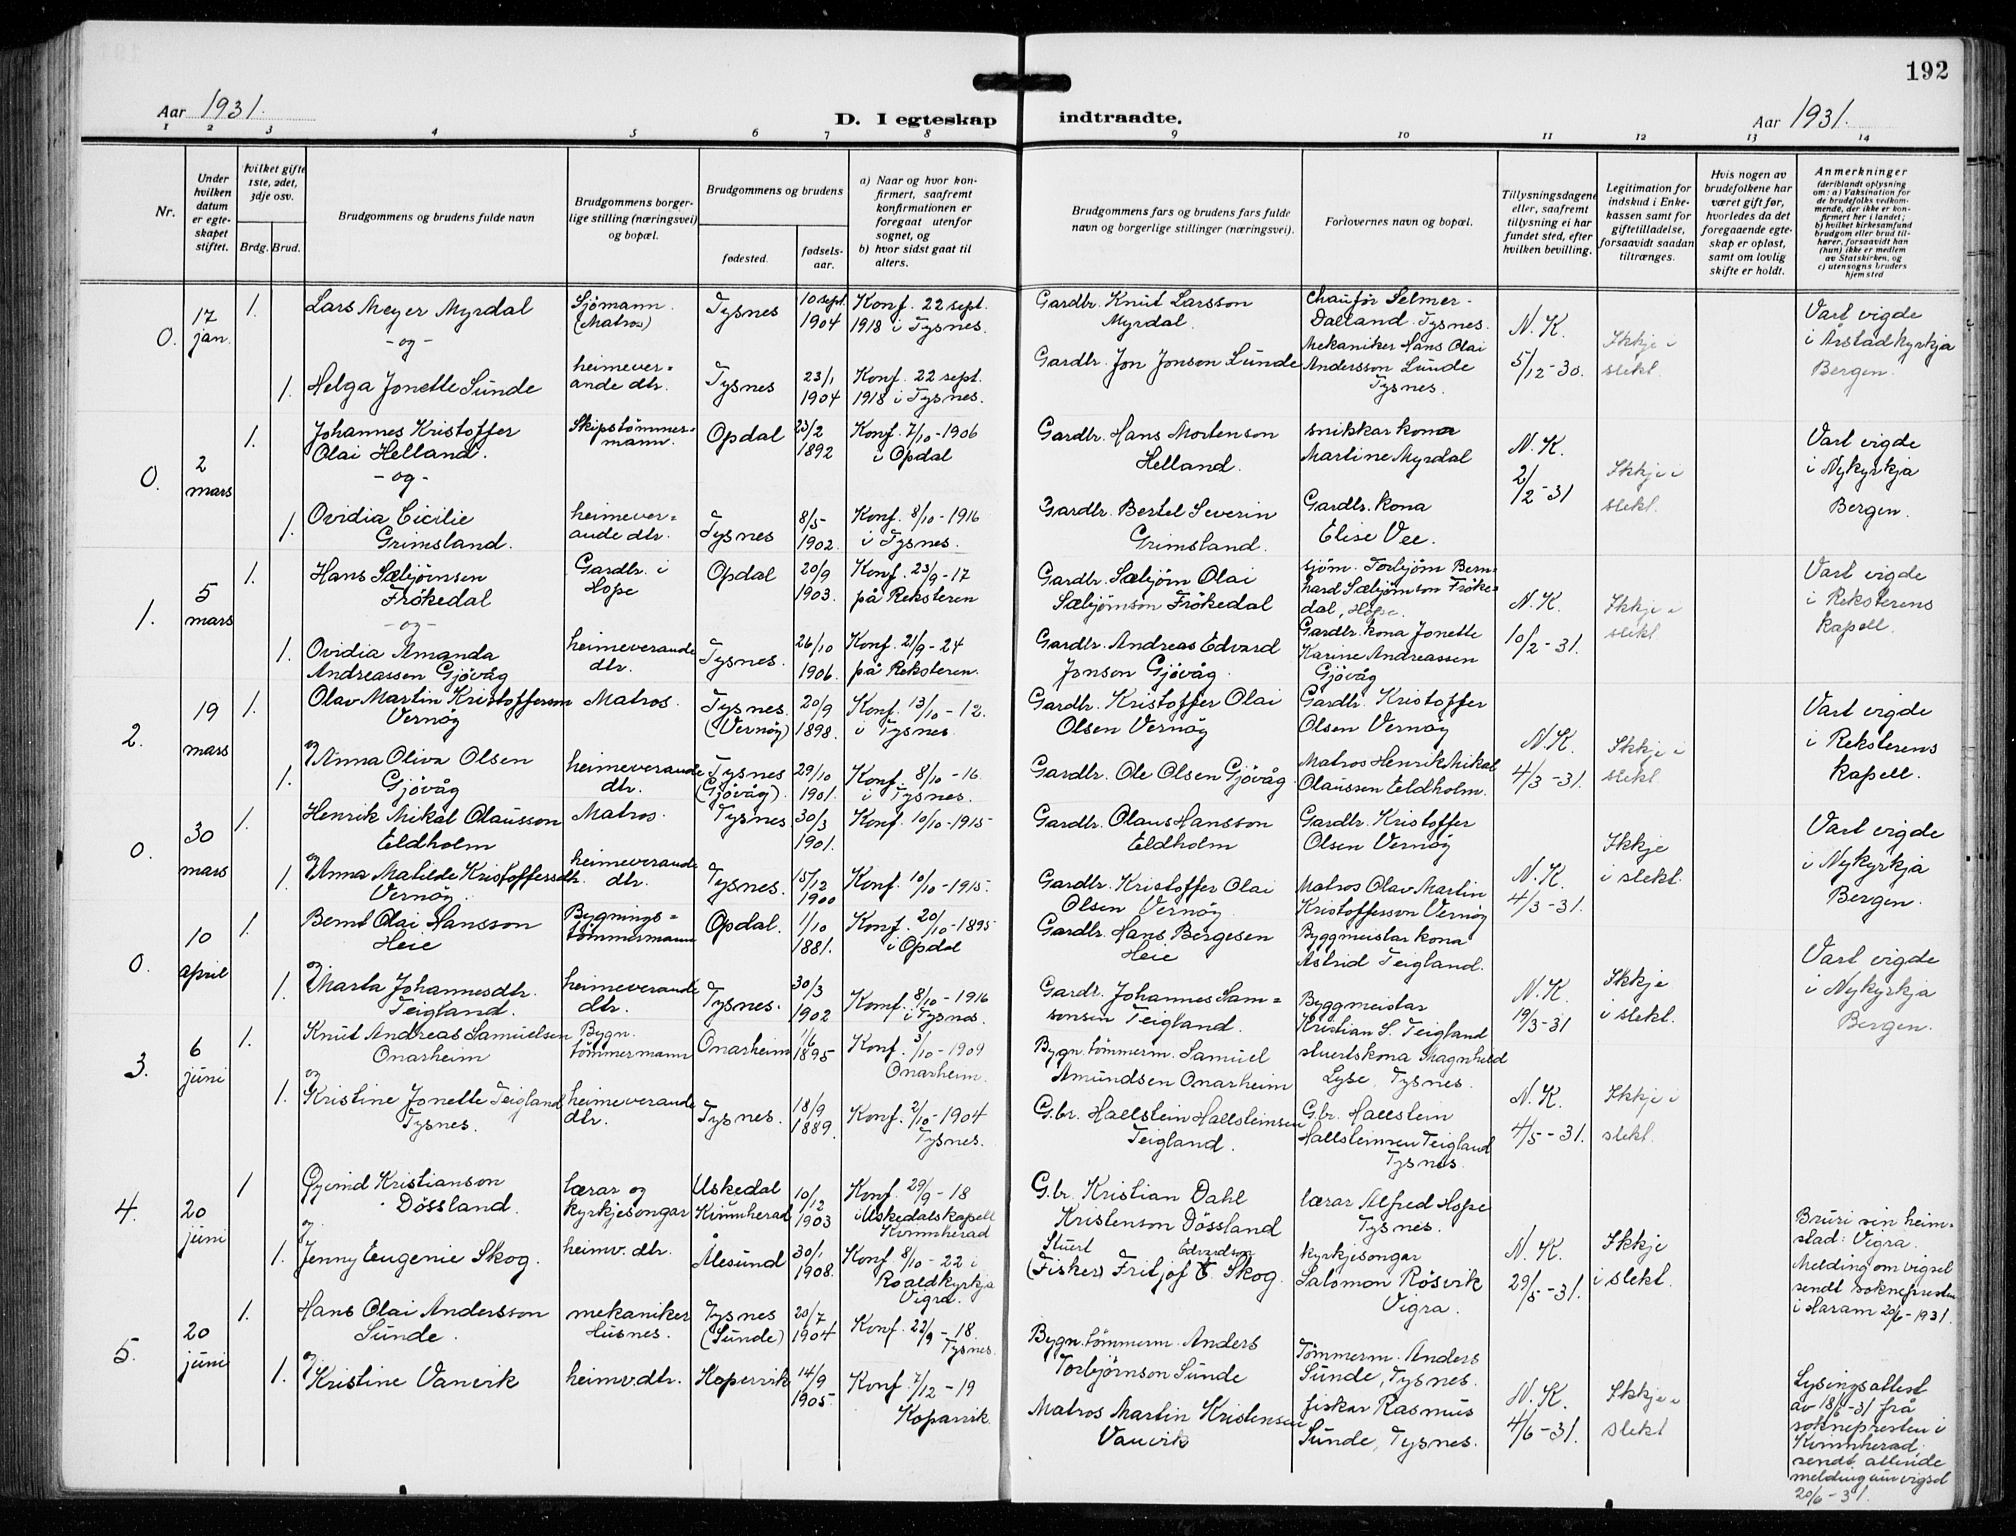 192
Aar 1931.
D. I egteskap indtraadte.
Aar 1931.
1 2 3 4 5 6 7 8 9 10 11 12 13 14
Nr.
Under hvilken datum er egteskapet stiftet.
hvilket gifte 1ste, 2det, 3dje osv.
Brdg. Brud.
Brudgommens og brudens fulde navn
Brudgommens borgerlige stilling (næringsvei) og bopæl.
Brudgommens og brudens
fødested.
fødselsaar.
a) Naar og hvor konfirmert, saafremt konfirmationen er foregaat utenfor sognet, og
b) hvor sidst gaat til alters.
Brudgommens fars og brudens fars fulde navn og borgerlige stillinger (næringsvei).
Forlovernes navn og bopæl.
Tillysningsdagene eller, saafremt tillysning ei har fundet sted, efter hvilken bevilling.
Legitimation for indskud i Enkekassen samt for giftetilladelse, forsaavidt saadan tiltrænges.
Hvis nogen av brudefolkene har været gift før, hvorledes da det foregaaende egteskap er opløst, samt om lovlig skifte er holdt.
Anmerkninger
(deriblandt oplysning om: a) Vaksination for de brudefolks vedkommende, der ikke er konfirmert her i landet; b) hvilket kirkesamfund brudgom eller brud tilhører, forsaavidt han (hun) ikke er medlem av Statskirken, og c) utensogns bruders hjemsted
0. 17 jan. 1. Lars Meyer Myrdal
Sjømann (Matros) Tysnes 10 sept. 1904 Konf. 22 sept. 1918 i Tysnes.
Gardbr. Knut Larsson Myrdal.
Chaufør Selmer Dalland Tysnes.
- og -
1. Helga Jonette Sunde
heimeverande dtr. Tysnes 23/1 1904 Konf. 22 sept. 1918 i Tysnes.
Gardbr. Jon Jonson Sunde
Mekaniker Hans Olai Andersson Sunde Tysnes.
N. K. 5/12-30.
Ikkje i slekt.
Vart vigde i Årstadkyrkja Bergen.
0. 2 mars 1. Johannes Kristoffer Olai Helland.
Skipstømmermann. Opdal 23/2 1892 Konf. 7/10-1906 i Opdal
Gardbr. Hans Mortenson Helland.
snikkar kona Martine Myrdal
- og -
1. Ovidia Cicilie Grimsland.
heimeverande dtr. Tysnes 8/5 1902. Konf. 8/10-1916 i Tysnes.
Gardbr. Bertel Severin Grimsland.
Gardbr. kona Elise Vee.
N. K. 2/2-31
Ikkje i slekt.
Vart vigde i Nykyrkja Bergen.
1. 5 mars 1. Hans Sæbjørnsen Frökedal
Gardbr. i Hope Opdal 20/9 1903. Konf. 23/9-17 på Reksteren
Gardbr. Sæbjørn Olai Sæbjørnson Frökedal
sjøm. Torbjørn Bernhard Sæbjørnson Frökedal, Hope.
- og -
1. Ovidia Amanda Andreassen Gjövåg
heimeverande dtr. Tysnes. 26/10 1906. Konf. 21/9-24 på Reksteren.
Gardbr. Andreas Edvard Jonson Gjövåg.
Gardbr. kona Jonette Karine Andreassen Gjövåg
N. K. 10/2-31.
Ikkje i slekt
Vart vigde i Reksterens kapell.
2. 19 mars 1. Olav Martin Kristofferson Vernöy
Matros. Tysnes. (Vernöy) 20/9 1898. Konf. 13/10-12. i Tysnes
Gardbr. Kristoffer Olai Olsen Vernöy
Gardbr. Kristoffer Olsen Vernöy
og
1. Anna Oliva Olsen Gjövåg
heimeverande dtr. Tysnes (Gjövåg). 29/10 1901. Konf. 8/10-16. i Tysnes.
Gardbr. Ole Olsen Gjövåg
Matros Henrik Mikal Olaussen Eldholm.
N. K. 4/3-31.
Ikkje i slekt
Vart vigde i Reksterens kapell.
0. 30 mars 1. Henrik Mikal Olausson Eldholm
Matros. Tysnes. 30/3 1901. Konf. 10/10-1915
Gardbr. Olaus Hansson Eldholm
Gardbr. Kristoffer Olsen Vernöy
og
1. Anna Matilde Kristoffersdtr. Vernöy.
heimeverande dtr. Tysnes. 15/12 1900 Konf. 10/10-1915.
Gardbr. Kristoffer Olai Olsen Vernöy.
Matros Olav Martin Kristofferson Vernöy
N. K. 4/3-31.
Ikkje i slekt.
Vart vigde i Nykyrkja Bergen.
0. 10 april 1. Bernt Olai Hansson Heie
Bygningstömmermann Opdal. 1/10 1881. Konf. 20/10-1895 i Opdal
Gardbr. Hans Bergesen Heie
Byggmeistar kona Astrid Teigland.
og
1. Marta Johannesdtr. Teigland.
heimeverande dtr. Tysnes. 30/3 1902 Konf. 8/10-1916 i Tysnes.
Gardbr. Johannes Samsonsen Teigland.
Byggmeistar Kristian S. Teigland
N. K. 19/3-31
Ikkje i slekt.
Vart vigde i Nykyrkja Bergen.
3. 6 juni 1. Knut Andreas Samuelsen Onarheim
Bygn. tömmermann Onarheim 1/6 1895 Konf. 3/10-1909 Onarheim.
Bygn. tömmerm. Samuel Amundsen Onarheim
stuertskona Magnhild Lyse, Tysnes.
og
1. Kristine Jonette Teigland Tysnes.
heimeverande dtr. Tysnes. 18/9 1889. Konf. 2/10-1904 Tysnes.
G.br. Hallstein Hallsteinsen Teigland.
G.br. Hallstein Hallsteinsen Teigland Tysnes.
N. K. 4/5-31.
Ikkje i slekt.
4. 20 juni 1 Öyvind Kristianson Dössland.
lærar og kyrkjesongar Uskedal Kvinnherad 10/12 1903 Konf. 29/9-18 i Uskedalskapell Kvinnherad
G.br. Kristian Dahl Kristenson Dössland
lærar Alfred Hope Tysnes.
og
1. Jenny Eugenie Skog.
heimv. dtr. Ålesund 30/1 1908. Konf. 8/10-22 i Roaldkyrkja Vigra.
Stuert (Fisker) Fritjof Edvardson Skog.
kyrkjesongar Salomon Rösvik Vigra.
N. K. 29/5-31.
Ikkje i slekt.
Bruri sin heimstad: Vigra.
Melding om vigsel sendt soknepresten i Haram 20/6-1931.
5. 20 juni 1. Hans Olai Andersson Sunde.
mekaniker Husnes. Tysnes (Sunde) 20/7 1904 Konf. 22/9-18. Tysnes.
Bygn. tömmerm. Anders Torbjørnson Sunde
Tömmerm. Anders Sunde, Tysnes.
og
1. Kristine Vanvik
heimv. dtr. Kopervik 14/9 1905. Konf. 7/12-19 Koparvik
Matros Martin Kristensen Vanvik
fiskar Rasmus Sunde, Tysnes.
N. K. 4/6-31.
Ikkje i slekt
Lysingsattest av 18/6-31 frå soknepresten i Kvinnherad, sendt attende melding um vigsel 20/6-31.